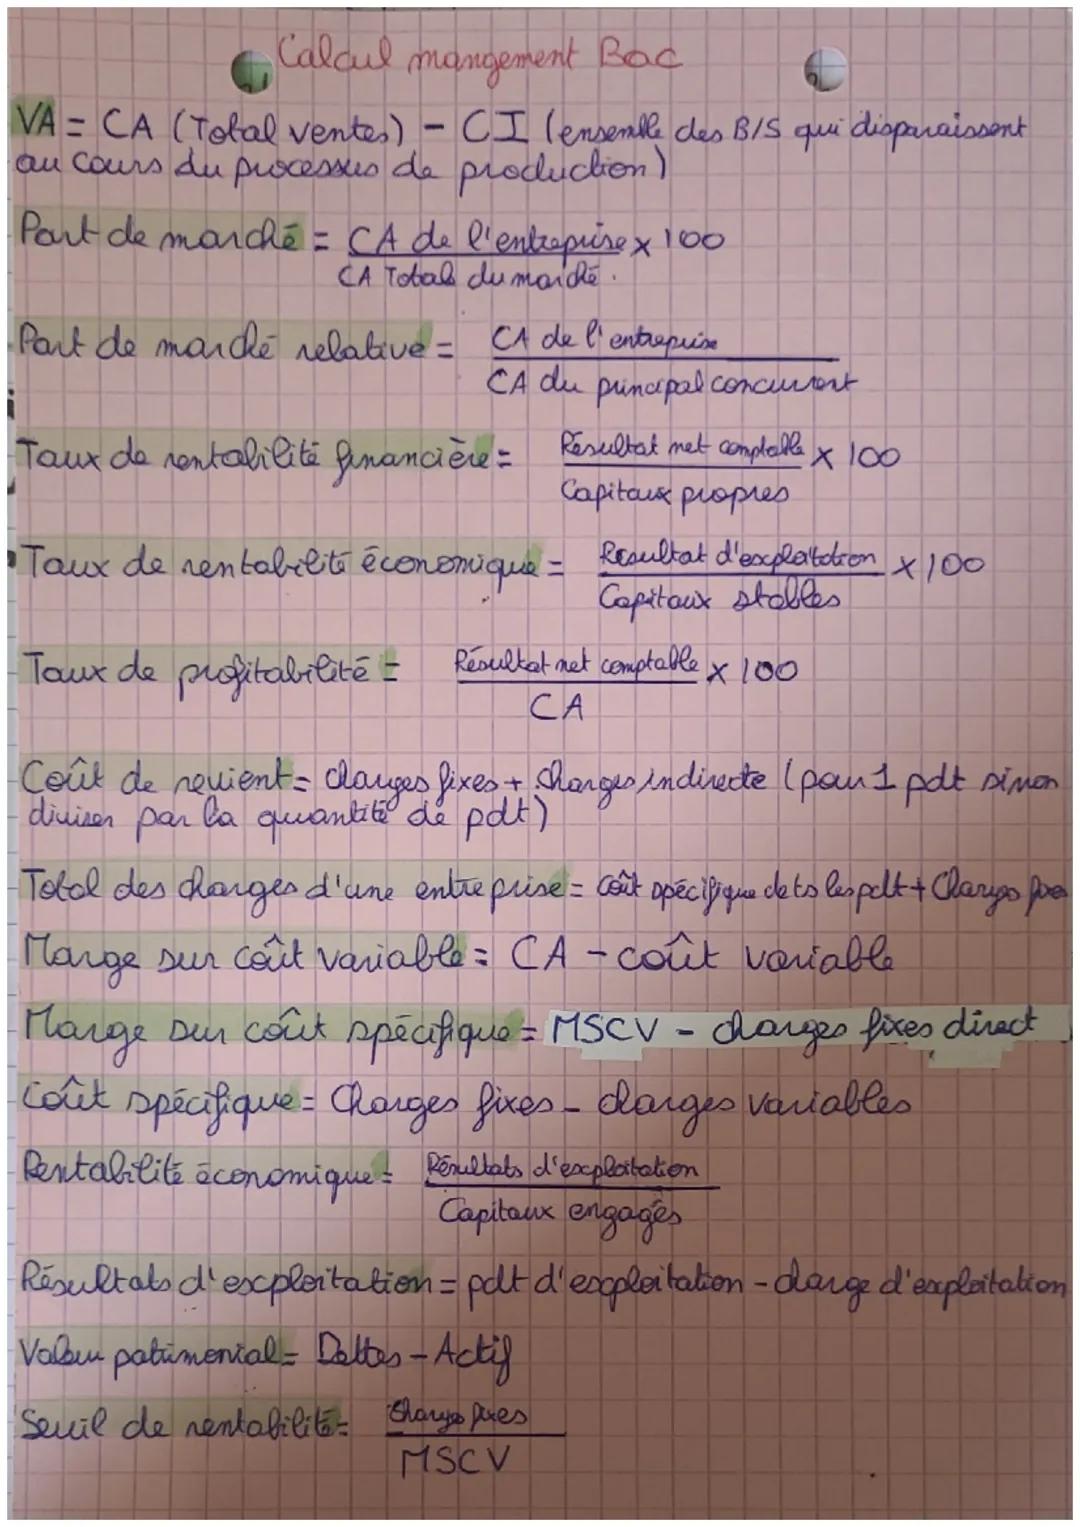 Calcul mangement Bac
VA = CA (Total ventes) - CI (ensemble des B/S qui disparaissent
au cours du processus de production)
Part de marché = CA de l'entreprise x 100
CA Total du marché.
Part de marché relative = CA de l'entreprise
CA du principal concurrent
Taux de rentabilité financière = Résultat net comptable x 100
Capitaux propres
Taux de rentabilité économique = Resultat d'exploitation x 100
Capitaux stables
Taux de profitabilité = Résultat net comptable x 100
CA
Coût de revient = charges fixes + charges indirecte (pour 1 pdt sinon
diviser par la quantité de pdt)
Total des charges d'une entreprise = Coût spécifique de ts les pdt + Charges fixes
Marge sur coût variable = CA - coût variable
Marge sur coût spécifique = MSCV - charges fixes direct
Coût spécifique = Charges fixes - charges variables
Rentabilité économique = Résultats d'exploitation
Capitaux engagés
Résultats d'exploitation = pdt d'exploitation - charge d'exploitation
Valeur patrimonial = Dettes - Actif
Seuil de rentabilité = Charges fixes
MSCV